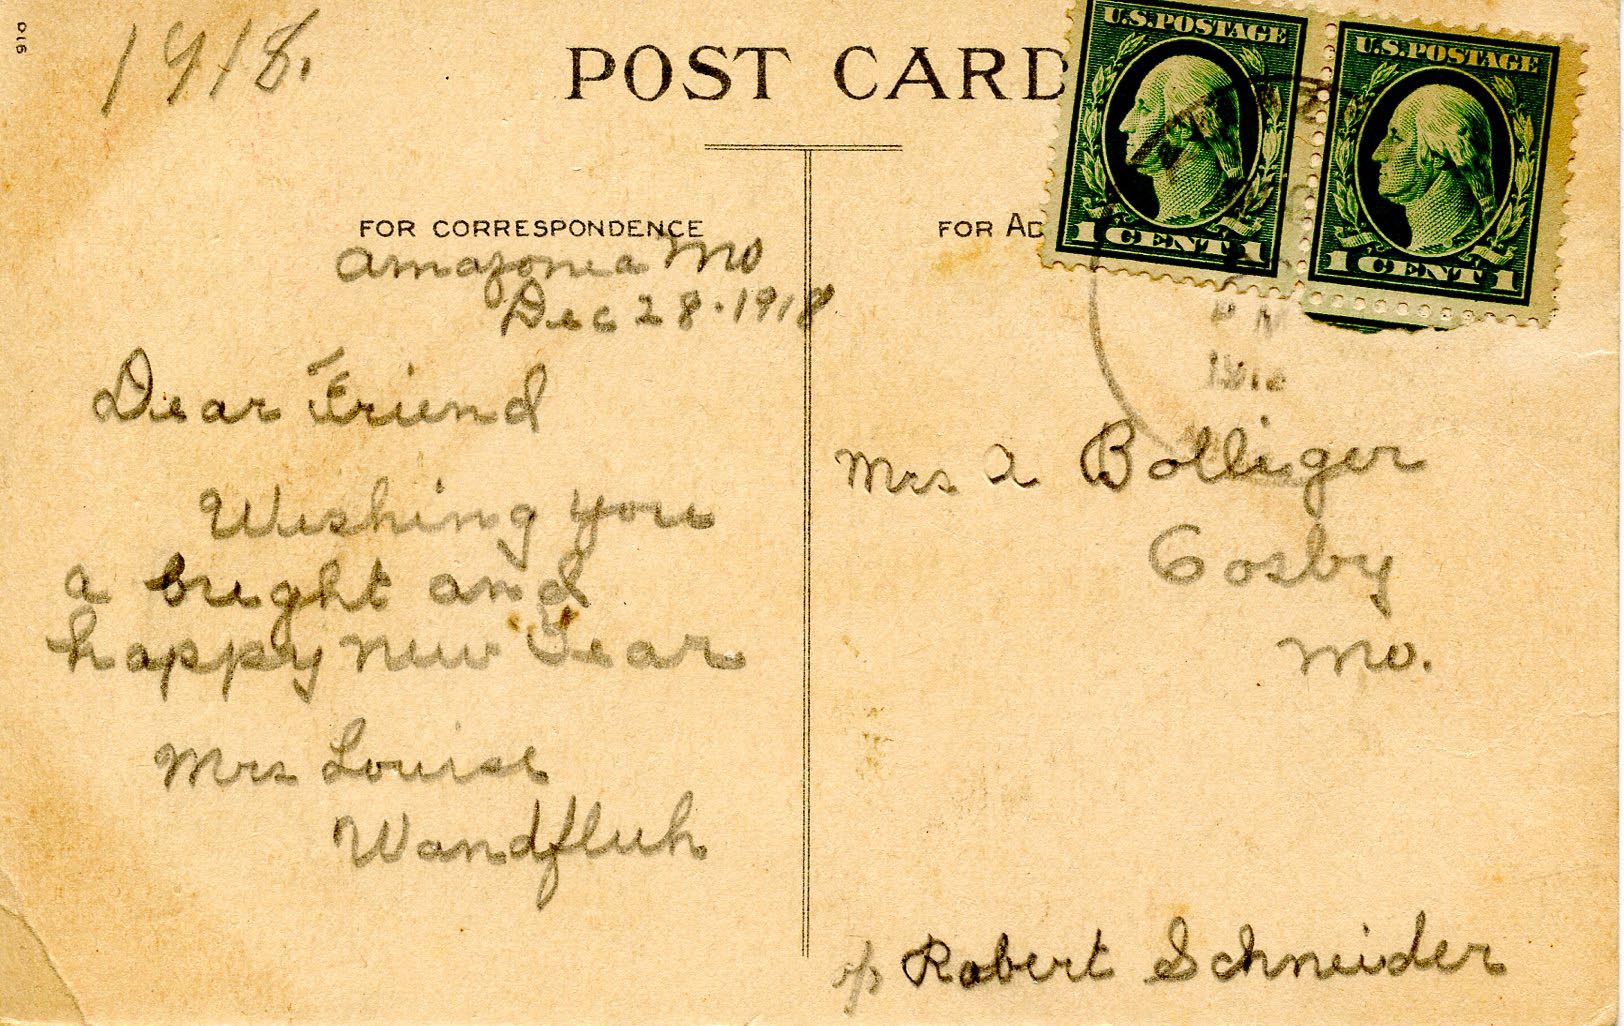 910
1918.
POST CARD
U.S.POSTAGE
1 CENT 1
U.S.POSTAGE
1 CENT 1
FOR CORRESPONDENCE
Amazonia Mo
Dec 28.1918
Dear Friend
Wishing you
a bright and
happy new Year
Mrs Louise
Wandfluh
FOR AD
PM
Mrs A Bolliger
Cosby
Mo.
Robert Schneider